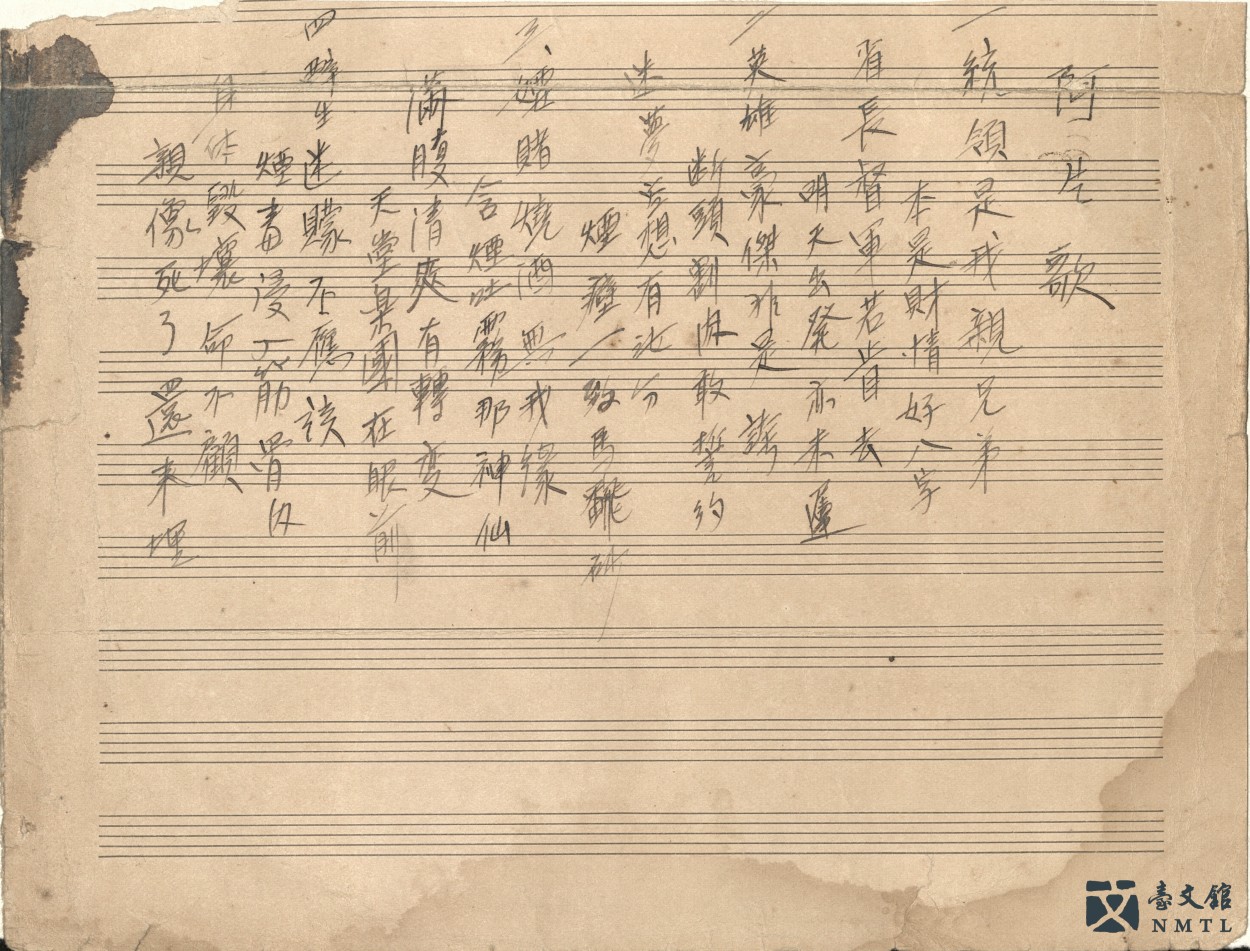 阿片歌
一 統領是我親兄弟
本是財情好八字
省長督軍若肯去
明天出發亦未遲
二 英雄豪傑非是
断頭割
敢誓約
迷夢
想有
分
煙癮一
三、嫖賭燒酒無我緣
含煙吐霧那神仙
滿腹清 有轉變
天堂 園在眼前
四 醉生迷 不應該
煙毒浸 筋胃
身体毀壞命不顧
親像死了還未埋
臺文館
NMTL